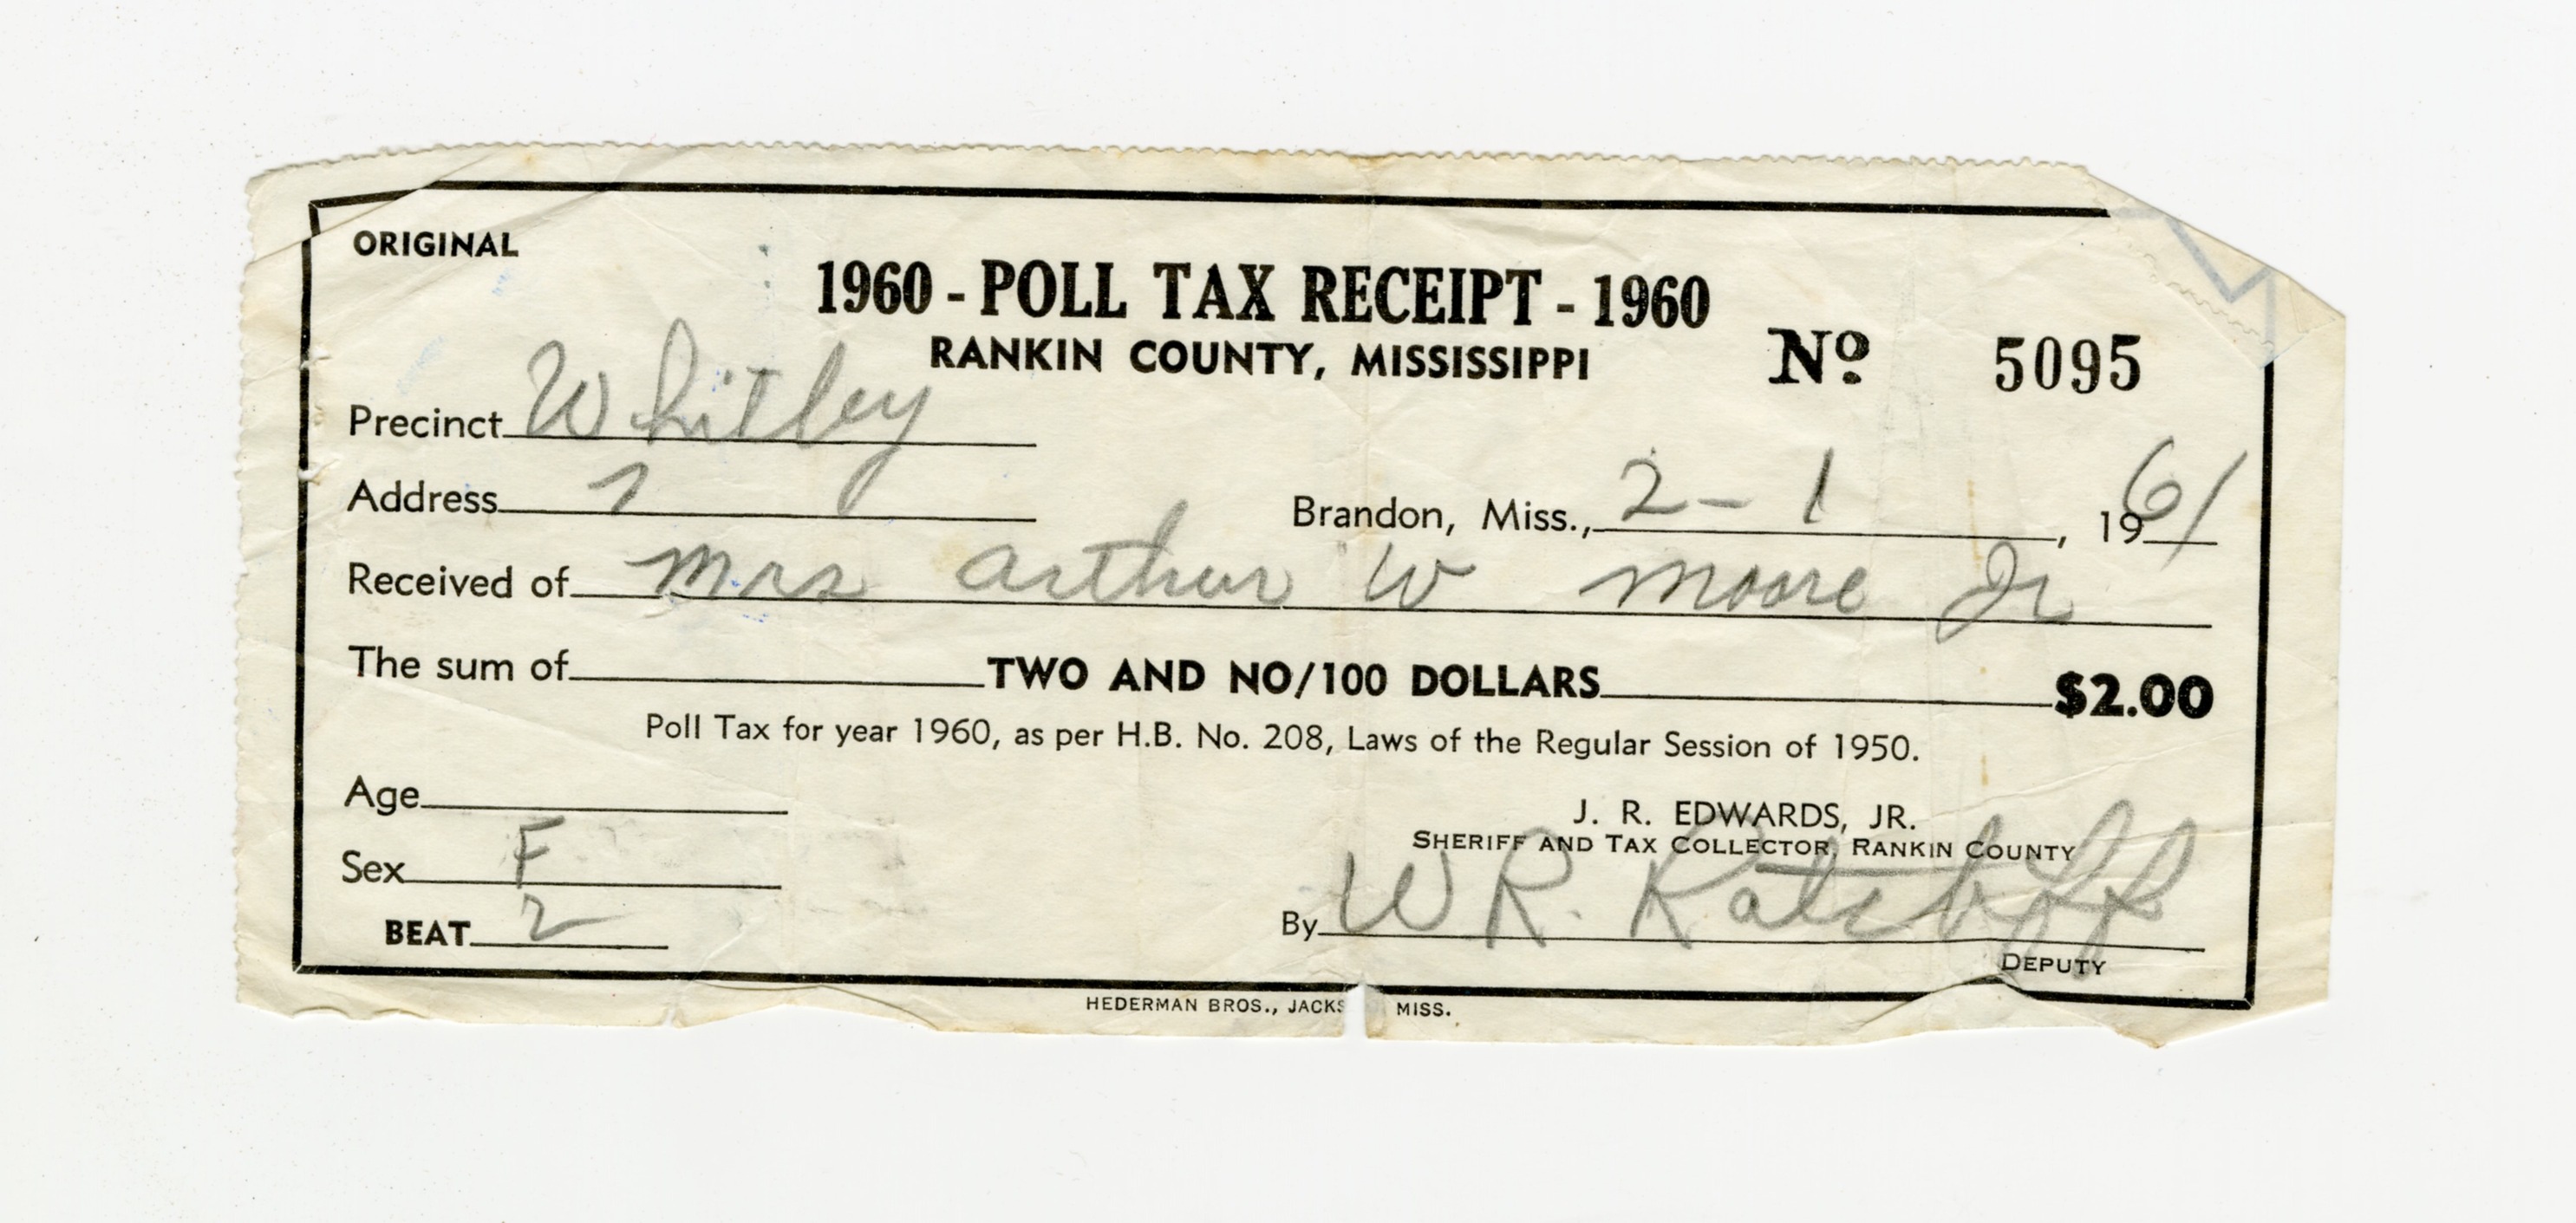 ORIGINAL
1960 - POLL TAX RECEIPT - 1960
RANKIN COUNTY, MISSISSIPPI
Nº 5095
Precinct Whitley
Address
Brandon, Miss., 2 - 1, 1961
Received of Mrs Arthur W Moore Jr
The sum of TWO AND NO/100 DOLLARS $2.00
Poll Tax for year 1960, as per H.B. No. 208, Laws of the Regular Session of 1950.
Age
J. R. EDWARDS, JR.
SHERIFF AND TAX COLLECTOR, RANKIN COUNTY
Sex F
By W R. Ratcliff
BEAT 2
DEPUTY
HEDERMAN BROS., JACKS MISS.